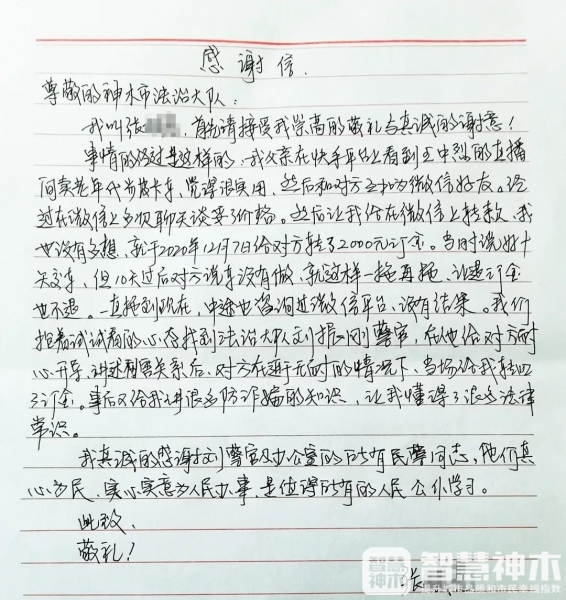 感谢信.
尊敬的神木市法治大队:
我叫张 ,首先请接受我崇高的敬礼与真诚的谢意!
事情的经过是这样的,我父亲在快手平台上看到王中烈的直播
间卖老年代步皮卡车,觉得很实用,然后和对方互加为微信好友。经
过在微信上多次聊天谈妥了价格。然后让我给在微信上转款,我
也没有多想,就于2020年12月7日给对方转了2000元订金。当时说好十
天交车,但10天过后对方说车没有做,就这样一拖再拖,让退订金
也不退。一直拖到现在,中途也咨询过微信平台,没有结果。我们
抱着试试看的心态找到法治大队刘振刚警官,在他给对方耐
心开导,讲述利害关系后,对方在迫于无耐的情况下,当场给我转回
了订金。事后又给我讲很多防诈骗的知识,让我懂得了很多法律
常识。
我真诚的感谢刘警官及办公室的所有民警同志,他们真
心为民、实心实意为人民办事,是值得所有的人民公仆学习。
此致,
敬礼!
张
智慧神木
智慧神木
提升城市品质和市民幸福指数